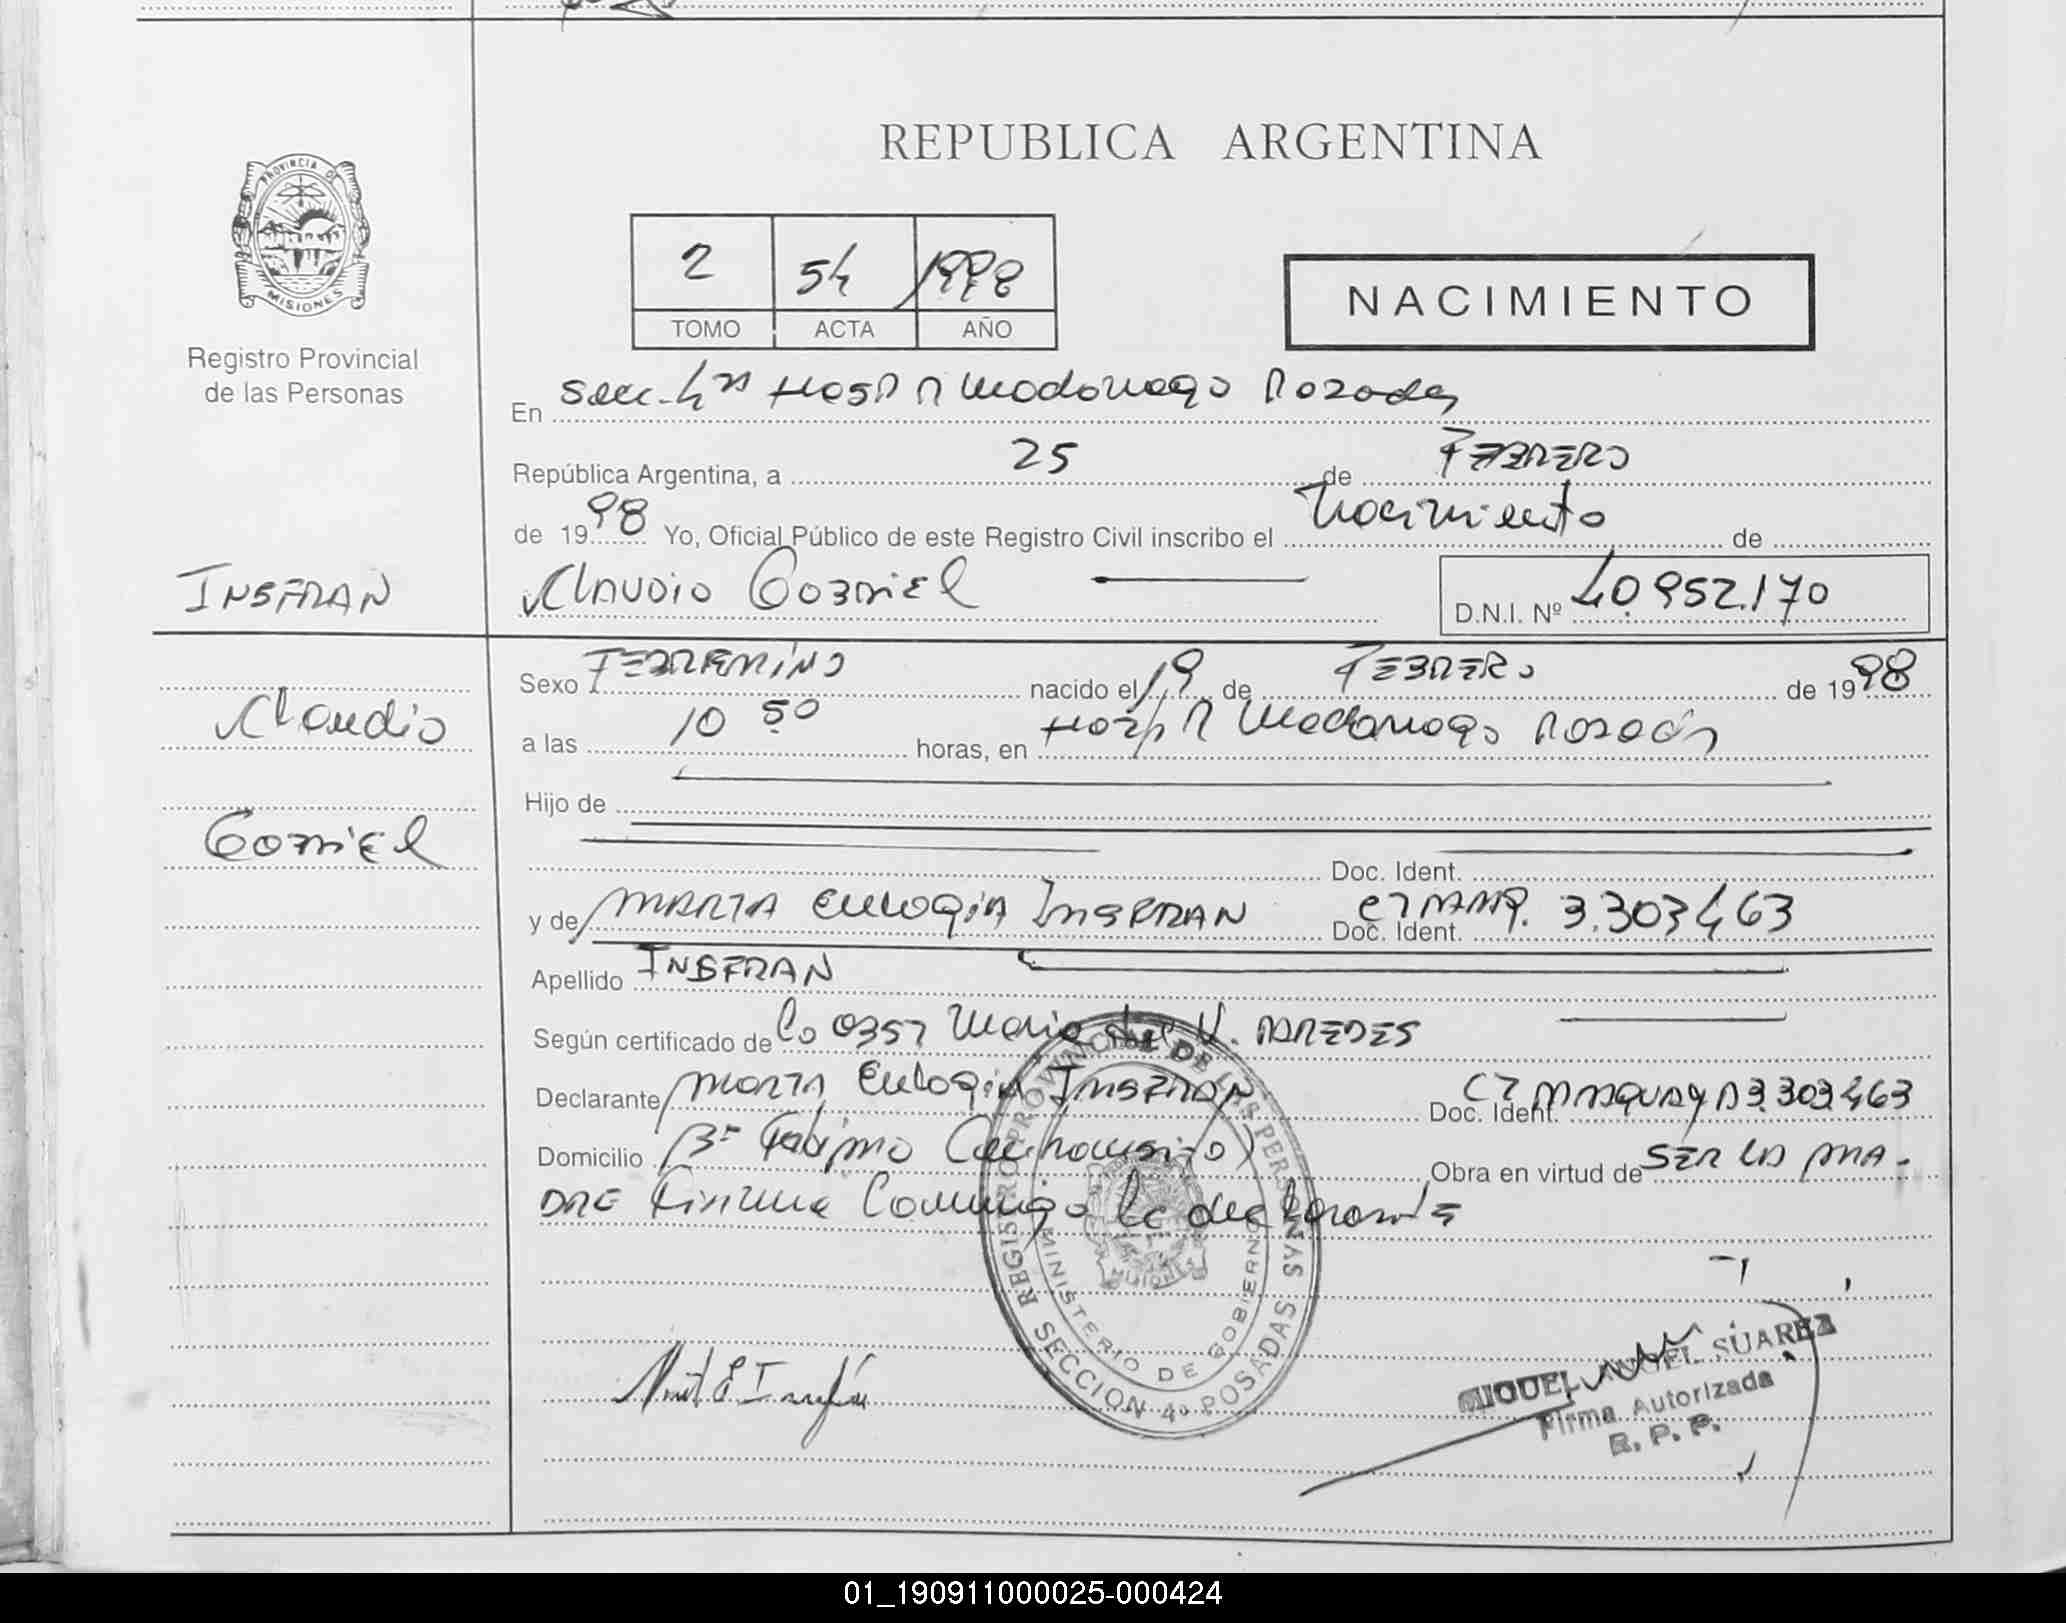 REPUBLICA ARGENTINA
PROVINCIA DE
MISIONES
Registro Provincial
de las Personas
2 54 1998
TOMO ACTA AÑO
NACIMIENTO
En Secc. 4ta Hosp R Madariaga Posadas
República Argentina, a 25 de FEBRERO
de 1998 Yo, Oficial Público de este Registro Civil inscribo el Nacimiento de
INSFRAN
CLAUDIO GABRIEL D.N.I. Nº 40.952.170
Sexo nacido el 19 de FEBRERO de 1998
Claudio
a las 10 50 horas, en Hosp R Madariaga Posadas
Hijo de
GABRIEL
Doc. Ident.
y de MARTA EULOGIA INSFRAN Doc. Ident. 3.303463
Apellido INSFRAN
Según certificado de Co 0357 Maria del V. PAREDES
Declarante MARTA EULOGIA INSFRAN Doc. Ident. CI PARAGUAYA 3.303.463
Domicilio Obra en virtud de SER LA MA-
DRE Firma Conmigo la declarante
REGISTRO PROVINCIAL DE LAS PERSONAS
MINISTERIO DE GOBIERNO
MISIONES
SECCION 4º POSADAS
MIGUEL ANGEL SUAREZ
Firma Autorizada
R. P. P.
01_190911000025-000424